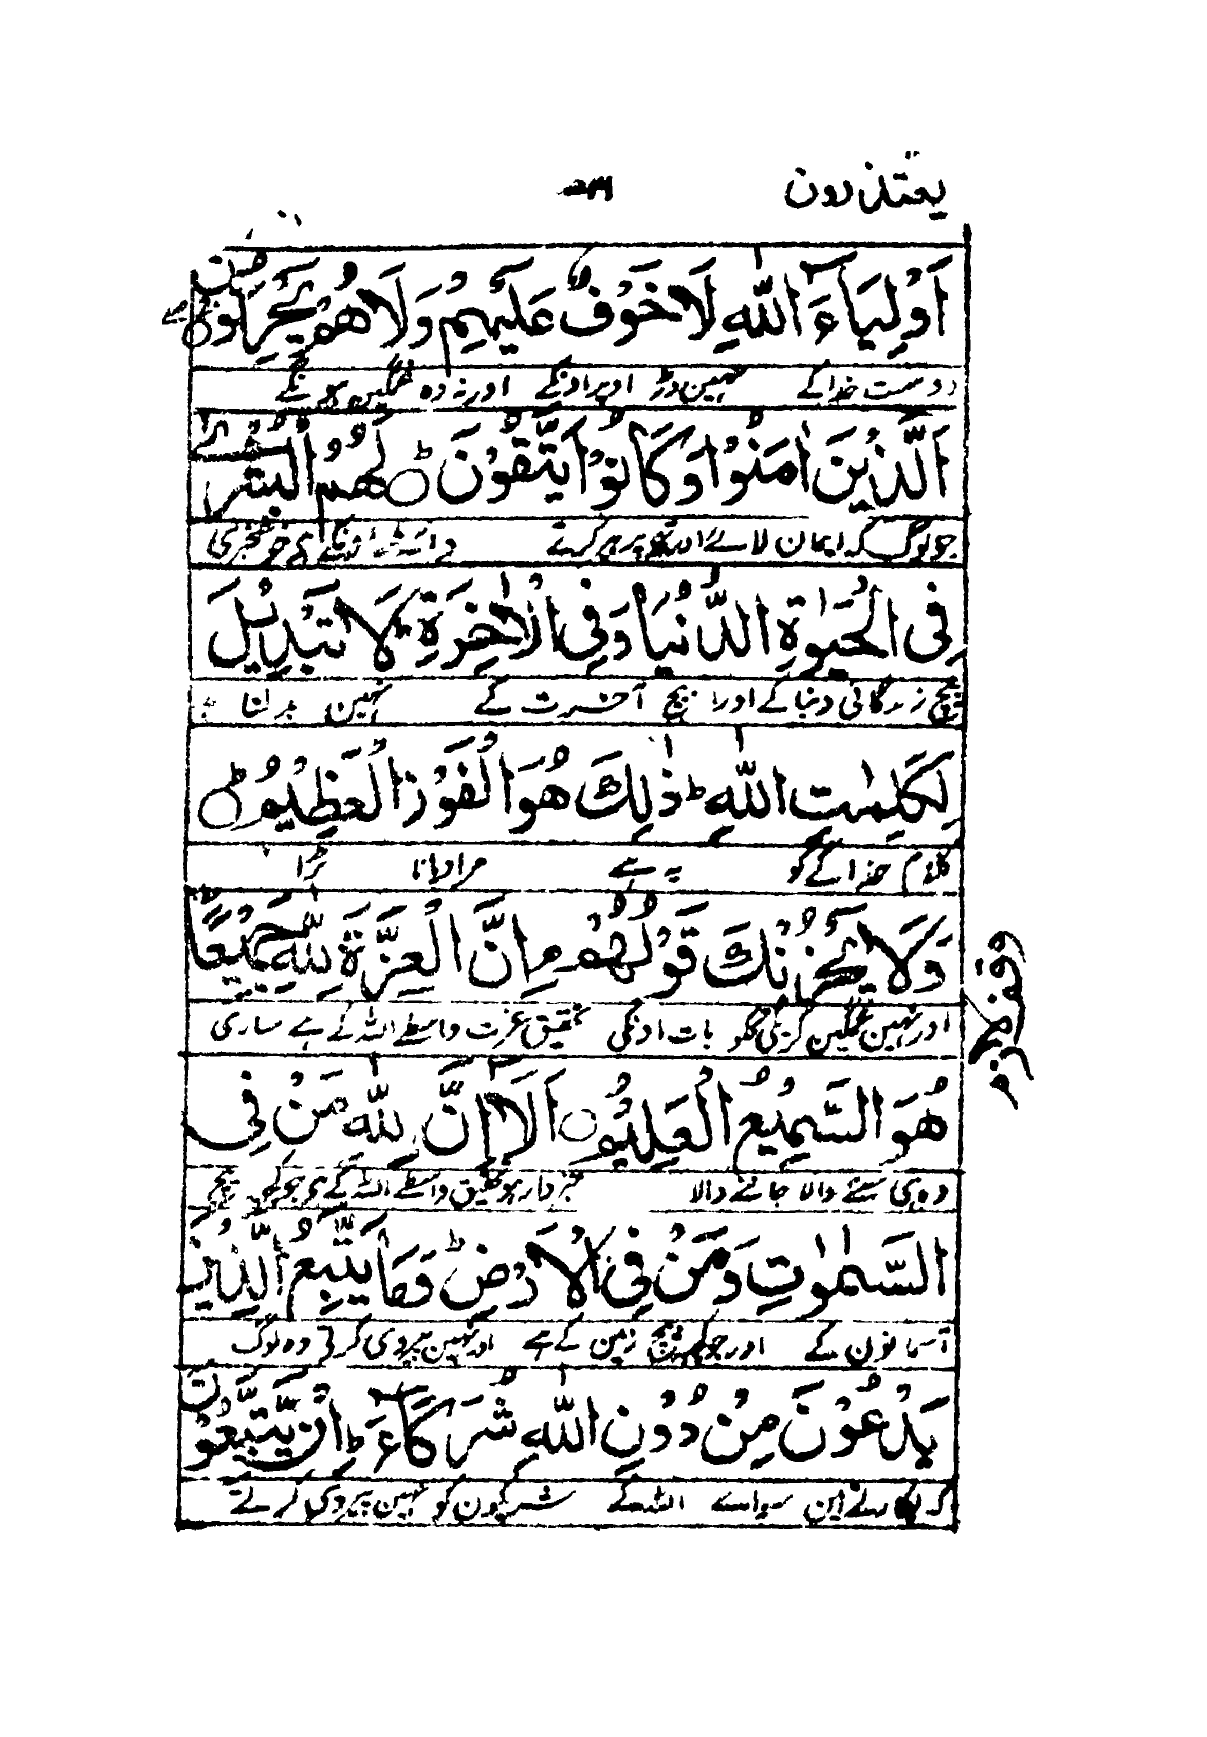 یعتذرون
اَوْلِيَآءَ اللّٰهِ لَا خَوْفٌ عَلَيْهِمْ وَلَا هُمْ يَحْزَنُوْنَ
دوست خدا کے نہین ڈر اوپر اونکے اور نہ وہ غمگین ہونگے
اَلَّذِيْنَ اٰمَنُوْا وَكَانُوْا يَتَّقُوْنَ ؕ لَهُمُ الْبُشْرٰى
جو لوگ کہ ایمان لائے اور تھے پرہیز کرتے واسطے اونکے ہی خوشخبری
فِى الْحَيٰوةِ الدُّنْيَا وَفِى الْاٰخِرَةِ ؕ لَا تَبْدِيْلَ
بیچ زندگانی دنیا کے اور بیچ آخرت کے نہین بدلنا
لِكَلِمٰتِ اللّٰهِ ؕ ذٰلِكَ هُوَ الْفَوْزُ الْعَظِيْمُ ؕ
کلام خدا کے کو یہ ہے مراد پانا بڑا
وَلَا يَحْزُنْكَ قَوْلُهُمْ م اِنَّ الْعِزَّةَ لِلّٰهِ جَمِيْعًا
اور نہین غمگین کرتی تجکو بات اونکی تحقیق عزت واسطے اللہ کے ہے ساری
هُوَ السَّمِيْعُ الْعَلِيْمُ اَلَآ اِنَّ لِلّٰهِ مَنْ فِى
وہ ہی سننے والا جاننے والا خبردار ہو تحقیق واسطے اللہ کے ہی جو کچھ بیچ
السَّمٰوٰتِ وَمَنْ فِى الْاَرْضِ ؕ وَمَا يَتَّبِعُ الَّذِيْنَ
آسمانون کے اور جو کچھ بیچ زمین کے ہے اور نہین پیروی کرتے وہ لوگ
يَدْعُوْنَ مِنْ دُوْنِ اللّٰهِ شُرَكَآءَ ؕ اِنْ يَّتَّبِعُوْنَ
کہ پکارتے ہین سواے اللہ کے شریکون کو نہین پیروی کرتے